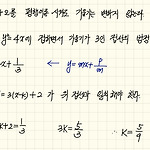 평행이동 시켜도 기울기는 변하지 않는다
y²=4x에 접하면서 기울기가 3인 접선의 방정
x+1/3 ← y=mx+p/m
=3(x+k)+2 가 위 접선과 일치해야 한다
k+2=1/3 3k=5/3 ∴ k=5/9